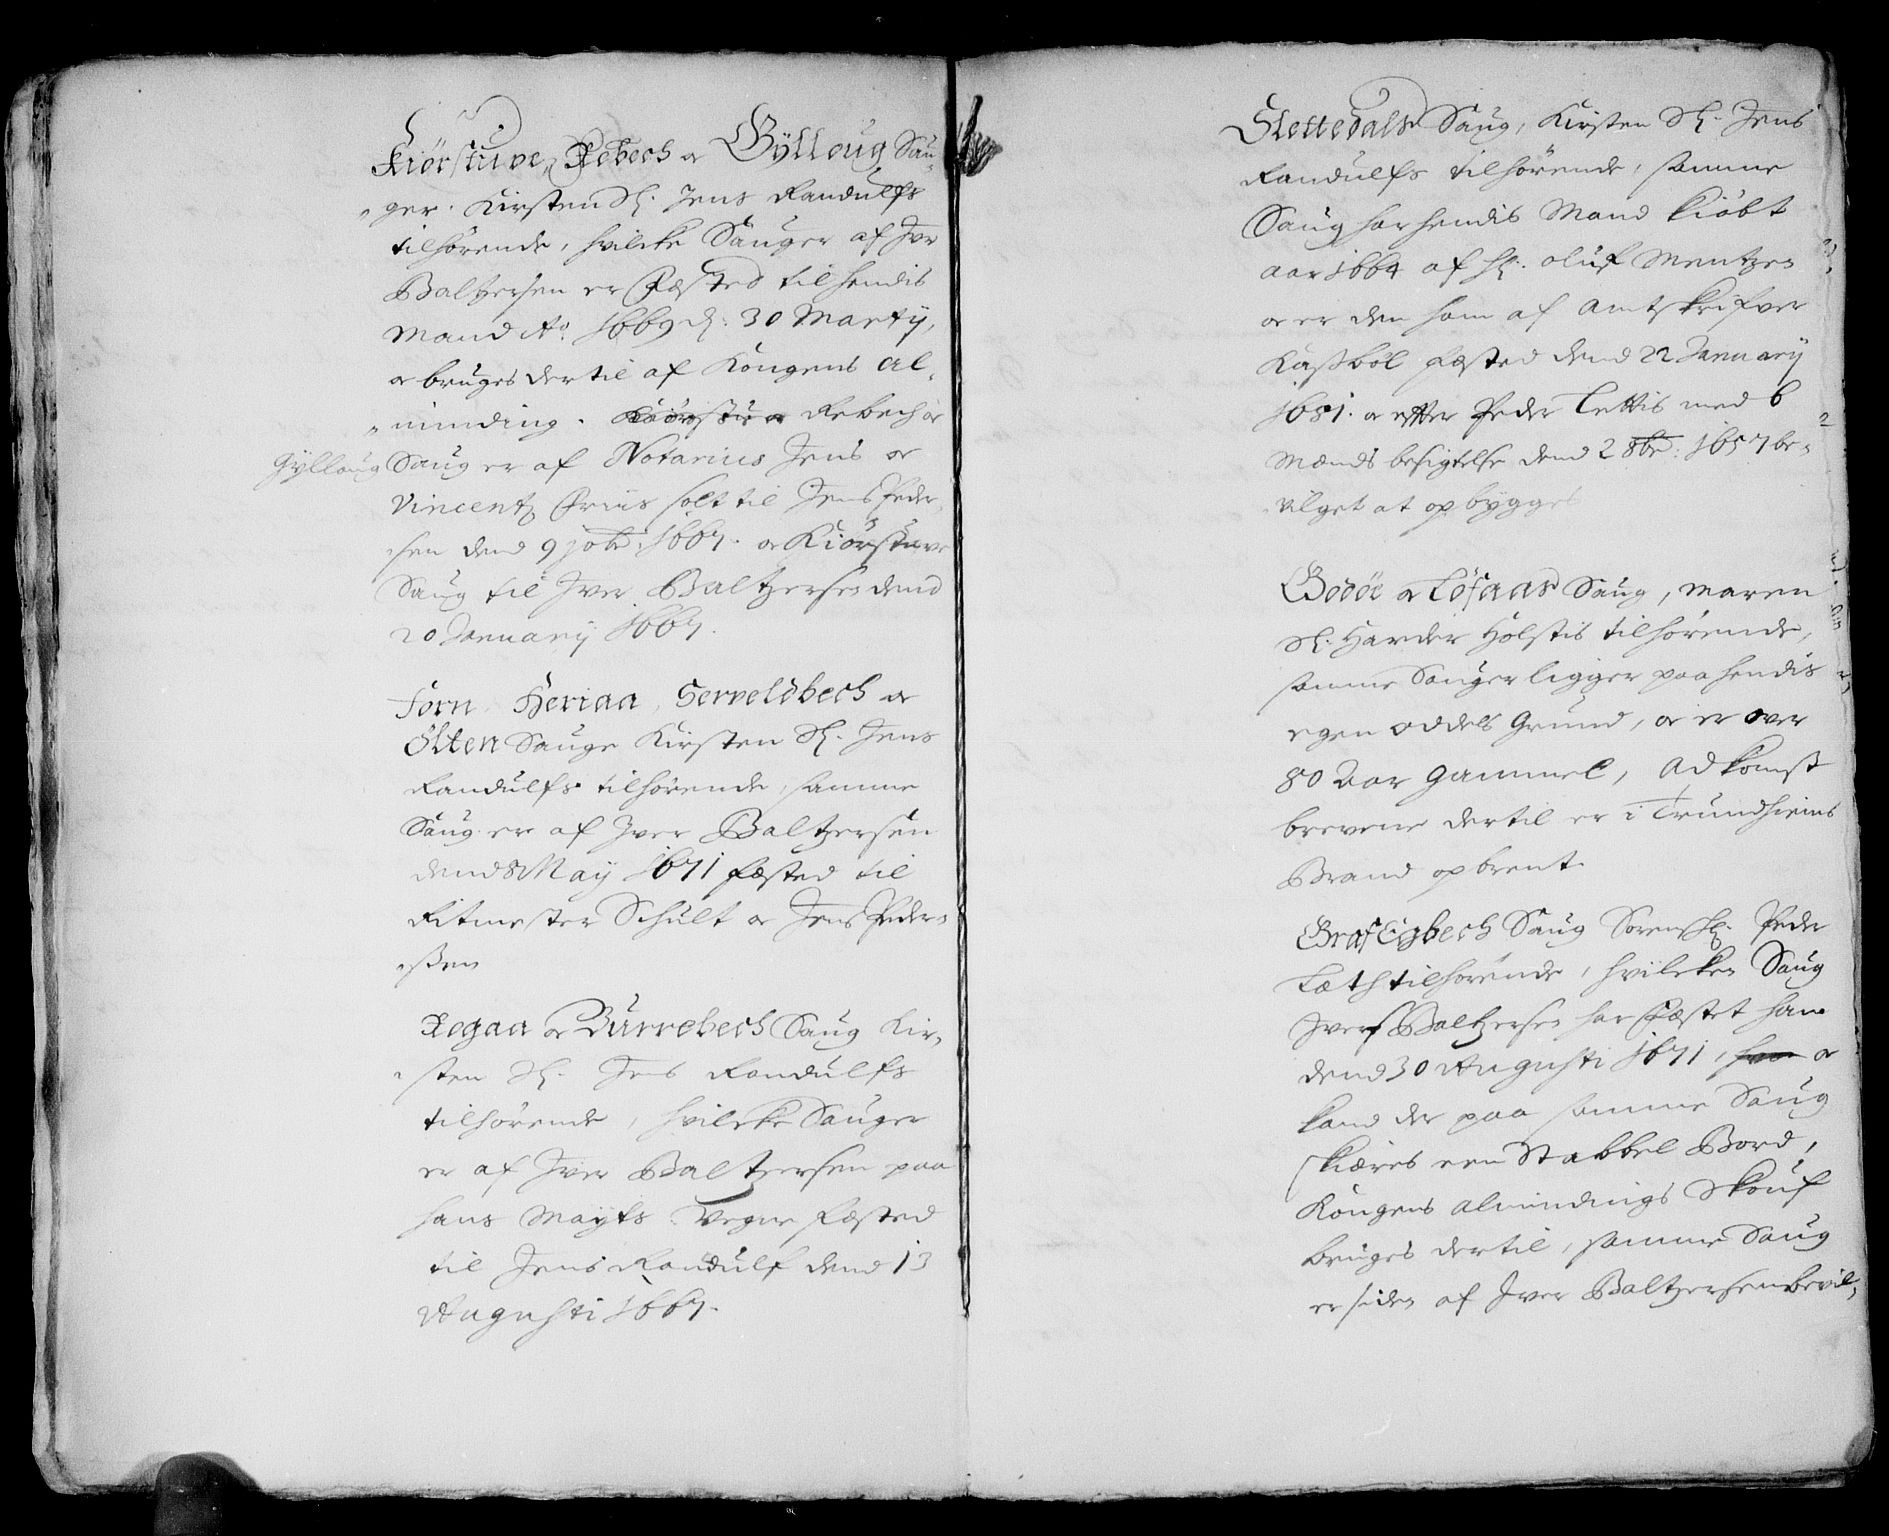 Kiörstuve, Rebech or Gÿlloug Sau-
ger. Kirsten Sl. Jens Randulfs
tilhørende, hvilcke Sauger af Iver
Baltzersen er Fæsted til hendis
Mand Aº. 1669 d. 30 Martÿ,
or bruges dertil af Kongens Al-
minding. Kiörstu or Rebech or
Gÿlloug Saug er af Notarius Jens or
Vincentz solt til Jens Peder-
sen dend 9 1667. or Kiörstuve
Saug til Iver Baltzersen dend
20 Januarÿ 1667.
Forn Heriaa, Serveldbech or
Ölten Sauge Kirsten Sl. Jens
Randulfs tilhörende, samme
Saug er af Iver Baltzersen
dend 8 Maÿ 1671 fæsted til
Ritmester Schult or Jens Peder-
sßen
Rogaa or Burrebech Saug Kir-
sten Sl. Jens Randulfs
tilhörende, hvilcke Sauger
er af Iver Baltzersen paa
hans Maÿts. Vegne fæsted
til Jens Randulf dend 13
Augusti 1667.
Slettedals Saug, Kirsten Sl. Jens
Randulfs tilhörende, samme
Saug har hendis Mand kiöbt
aar 1664 af Sl. oluf Mentzen
or er den ham af Amtskrifver
Kaßböl fæsted dend 22 Januarÿ
1651. or efter Peder Tettis med 6
Mænds besigtelse dend 2 8br: 1657 be-
vilget at opbÿgges
Bodöe or Töfaas Saug, Maren
Sl. Harder Holstis tilhörende,
samme Sauger ligger paa hendis
egen oddels Grund, or er over
80 Aar gammel, Adkomst
brevene dertil er i Trundhiems
Brand opbrent.
Saug Sorensk. Peder
Tæth tilhörende, hvilcken Saug
Iver Baltzersen har Fæstet ham
dend 30 Augusti 1671, or
kand der paa samme Saug
skiæres een Stabbel Bord,
Kongens Almindings Skouf
bruges dertil, samme Saug
er siden af Iver Baltzersen bevil-